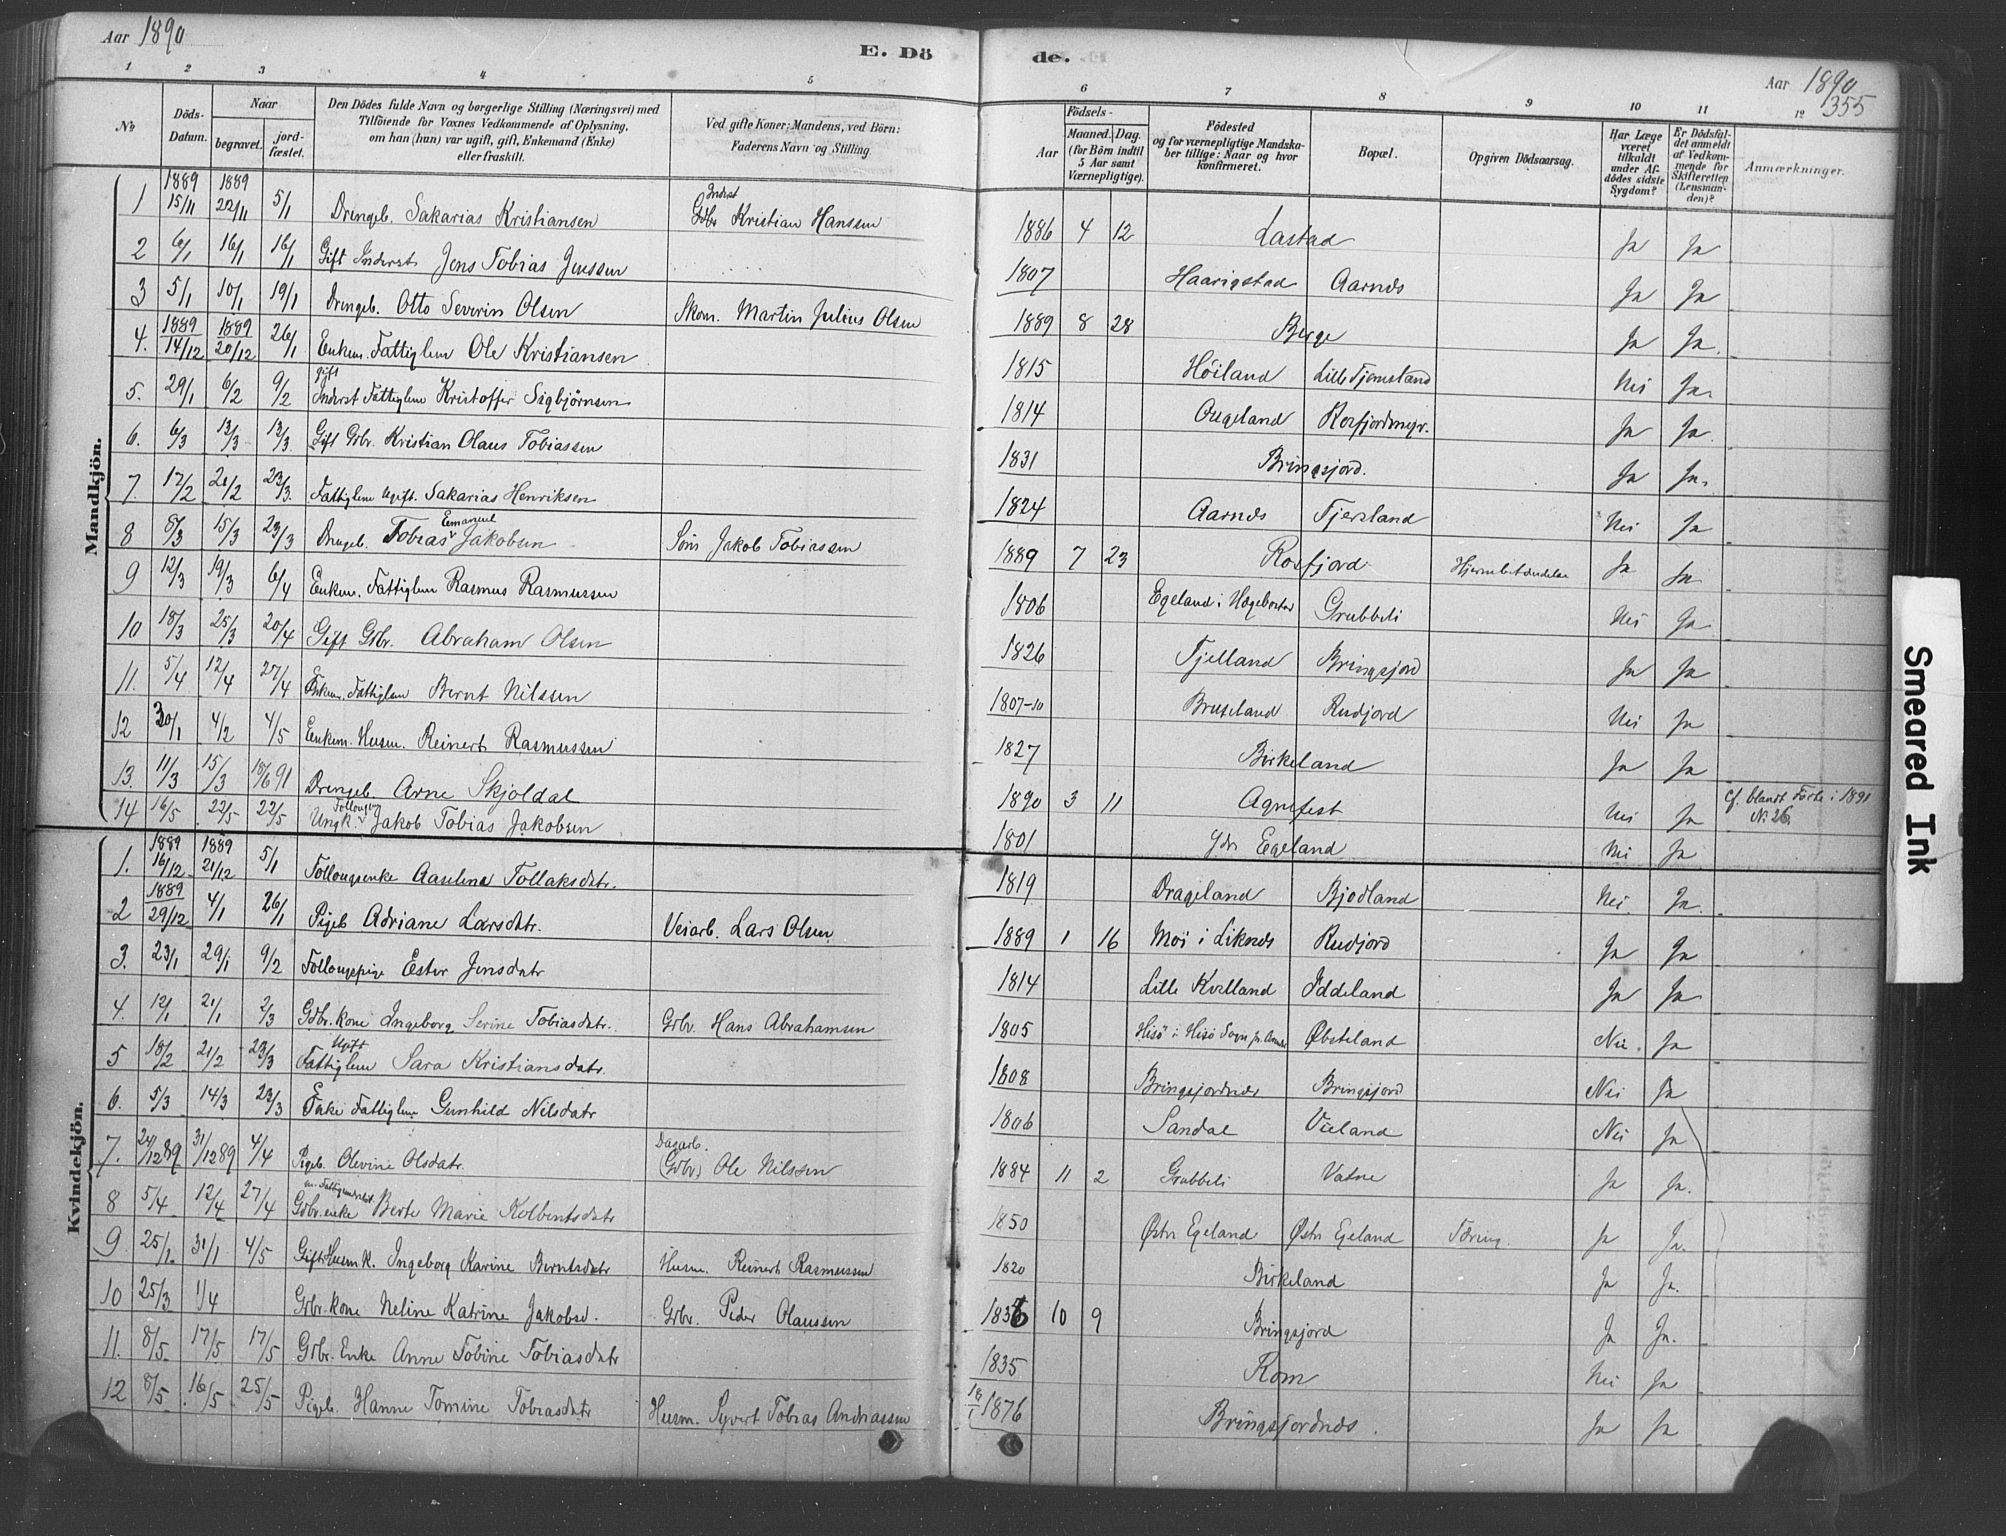 Aar 1890
E. Dö
1 2 3 4 5
No
Döds-Datum.
Naar
begravet. jord-fæstet.
Den Dödes fulde Navn og borgerlige Stilling (Næringsvei) med
Tilföiende for Voxnes Vedkommende af Oplysning,
om han (hun) var ugift, gift, Enkemand (Enke)
eller fraskilt.
Ved gifte Koner: Mandens, ved Börn:
Faderens Navn og Stilling.
Mandkjön.
1 1889 15/11 1889 22/11 5/1 Drengeb. Sakarias Kristiansen Inderst Gdbr Kristian Hanssen
2 6/1 16/1 16/1 Gift Inderst Jens Tobias Jenssen
3 5/1 10/1 19/1 Drengeb. Otto Severin Olsen Skom. Martin Julius Olsen
4. 1889 14/12 1889 20/12 26/1 Enkem. Fattiglem Ole Kristiansen
5. 29/1 6/2 9/2 gift Inderst Fattiglem Kristoffer Sigbjörnsen
6. 6/3 13/3 13/3 Gift Grbr. Kristian Olaus Tobiassen
7. 17/2 21/2 23/3. Fattiglem Ugift. Sakarias Henriksen
8 8/3 15/3 23/3 Drengeb. Tobias Emanuel Jakobsen Søm Jakob Tobiassen
9 12/3 19/3 6/4 Enkem. Fattiglem Rasmus Rasmussen
10 18/3 25/3 20/4 Gift Grbr. Abraham Olsen
11. 5/4 12/4 27/4 Enkem. Fattiglem Bernt Nilssen
12 30/1 4/2 4/5 Enkem. Husm. Reinert Rasmussen
13. 11/3 15/3 18/6 91 Drengeb. Arne Skjöldal
14 16/5 22/5 22/5 Ungk. Follougsm Jakob Tobias Jakobsen
Kvindekjön.
1. 1889 16/12 1889 21/12 5/1 Follougsenke Aaselena Tollaksdatr.
2 1889 29/12 4/1 26/1 Pigeb Adriane Larsdatr. Veiarb. Lars Olsen
3. 23/1 29/1 9/2 Follougspige Ester Jensdatr
4. 12/1 21/1 2/3 Gdbr. kone Ingeborg Serine Tobiasdatr. Grbr. Hans Abrahamsen
5 18/2 21/2 23/3 Ugift Fattiglem Sara Kristiansdatr.
6. 5/3 14/3 23/3 Enke Fattiglem Gunhild Nilsdatr
7. 24/12 89 31/12 89 4/4 Pigeb. Olevine Olsdatr. Dagarb. (Gdbr) Ole Nilssen
8 5/4 12/4 27/4 Gdbr. enke Berte Marie Kolbentsdatr
9 25/1. 31/1 4/5 Gift Husmk. Ingeborg Karine Berntsdatr Husm. Reinert Rasmussen
10 25/3 1/4 Grbr. kone Neline Katrine Jakobsd. Grbr. Peder Olaussen
11. 8/5 17/5 17/5 Grbr. Enke Anne Tobine Tobiasdatr
12 8/5 16/5 25/5 Pigeb. Hanne Tomine Tobiasdatr Husm. Syvert Tobias Andreassen
de.
Aar 1890
355
6 7 8 9 10 11 12
Födsels-
Aar
Maaned. Dag.
(for Börn indtil
5 Aar samt
Værnepligtige).
Födested
og for værnepligtige Mandska-
ber tillige: Naar og hvor
konfirmeret.
Bopæl.
Opgiven Dödsaarsag.
Har Læge
været
tilkaldt
under Af-
dödes sidste
Sygdom?
Er Dödsfal-
det anmeldt
af Vedkom-
mende for
Skifteretten
(Lensman-
den)?
Anmærkninger.
1886 4 12 Lastad Ja Ja
1807 Haarigstad Aarnes Ja Ja
1889 8 28 Berge Ja Ja.
1815 Höiland Lille Tjomstand Nei Ja.
1814 Augeland Rosfjordmyr. Ja Ja.
1831 Bringsjord. Ja Ja.
1824 Aarnes Fjersland Nei Ja
1889 7 23 Rosfjord Hjernebetændelse Ja Ja
1806 Egeland i Hægebostad Grubbeli Nei Ja.
1826 Fjelland Bringsjord Ja Ja
1807-10 Bruseland Rudjord Nei Ja
1827 Birkeland Ja Ja
1890 3 11 Agnefest Nei Ja cf. blandt Førte i 1891 No. 26.
1801 Ydr Egeland Nei Ja
1819 Drageland Bjodland Nei. Ja.
1889 1 16 Moi i Liknes Rudjord Ja Ja
1814 Lille Kvelland Iddeland Ja Ja
1805 Hisö i Hisö Sogn Øbsteland Nei. Ja
1808 Bringsjordnes Bringsjord Nei Ja
1806 Sandal Vieland Nei Ja
1884 11 2 Grubbeli Vatne Ja Ja.
1850 Østre Egeland Østre Egeland Tæring. Ja Ja.
1820 Birkeland Ja Ja.
1836 10 9 Bringsjord Ja Ja.
1835 Rom Nei Ja
18/1 1876 Bringsjordnes. Ja Ja
Smeared Ink